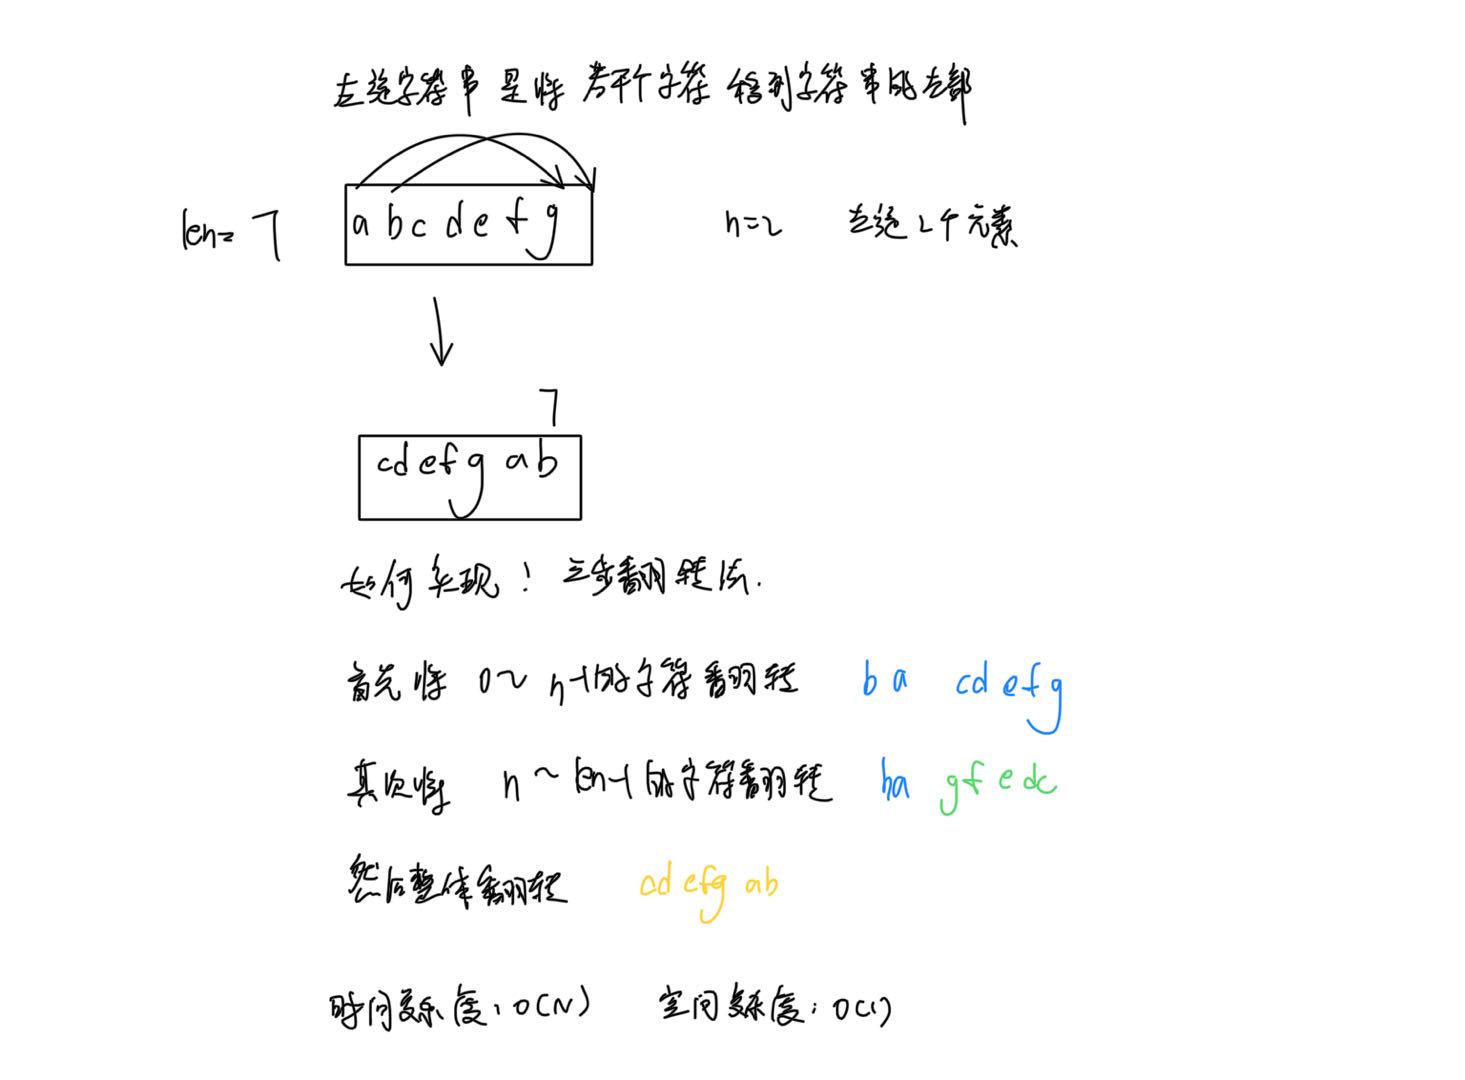 左旋字符串是将若干个字符移到字符串的左部
len=7 abcdefg n=2 左旋2个元素
7
cdefgab
如何实现! 三步翻转法.
首先将 0~n-1的字符翻转 ba cdefg
其次将 n~len-1的字符翻转 ba gfedc
然后整体翻转 cdefgab
时间复杂度: O(N) 空间复杂度: O(1)